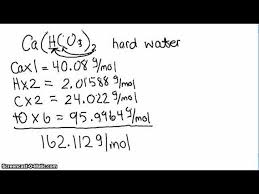 Ca(HCO3)2 hard water
Ca x 1 = 40.08 g/mol
H x 2 = 2.01588 g/mol
C x 2 = 24.022 g/mol
O x 6 = 95.9964 g/mol
162.1129 g/mol
Screencast-O-Matic.com